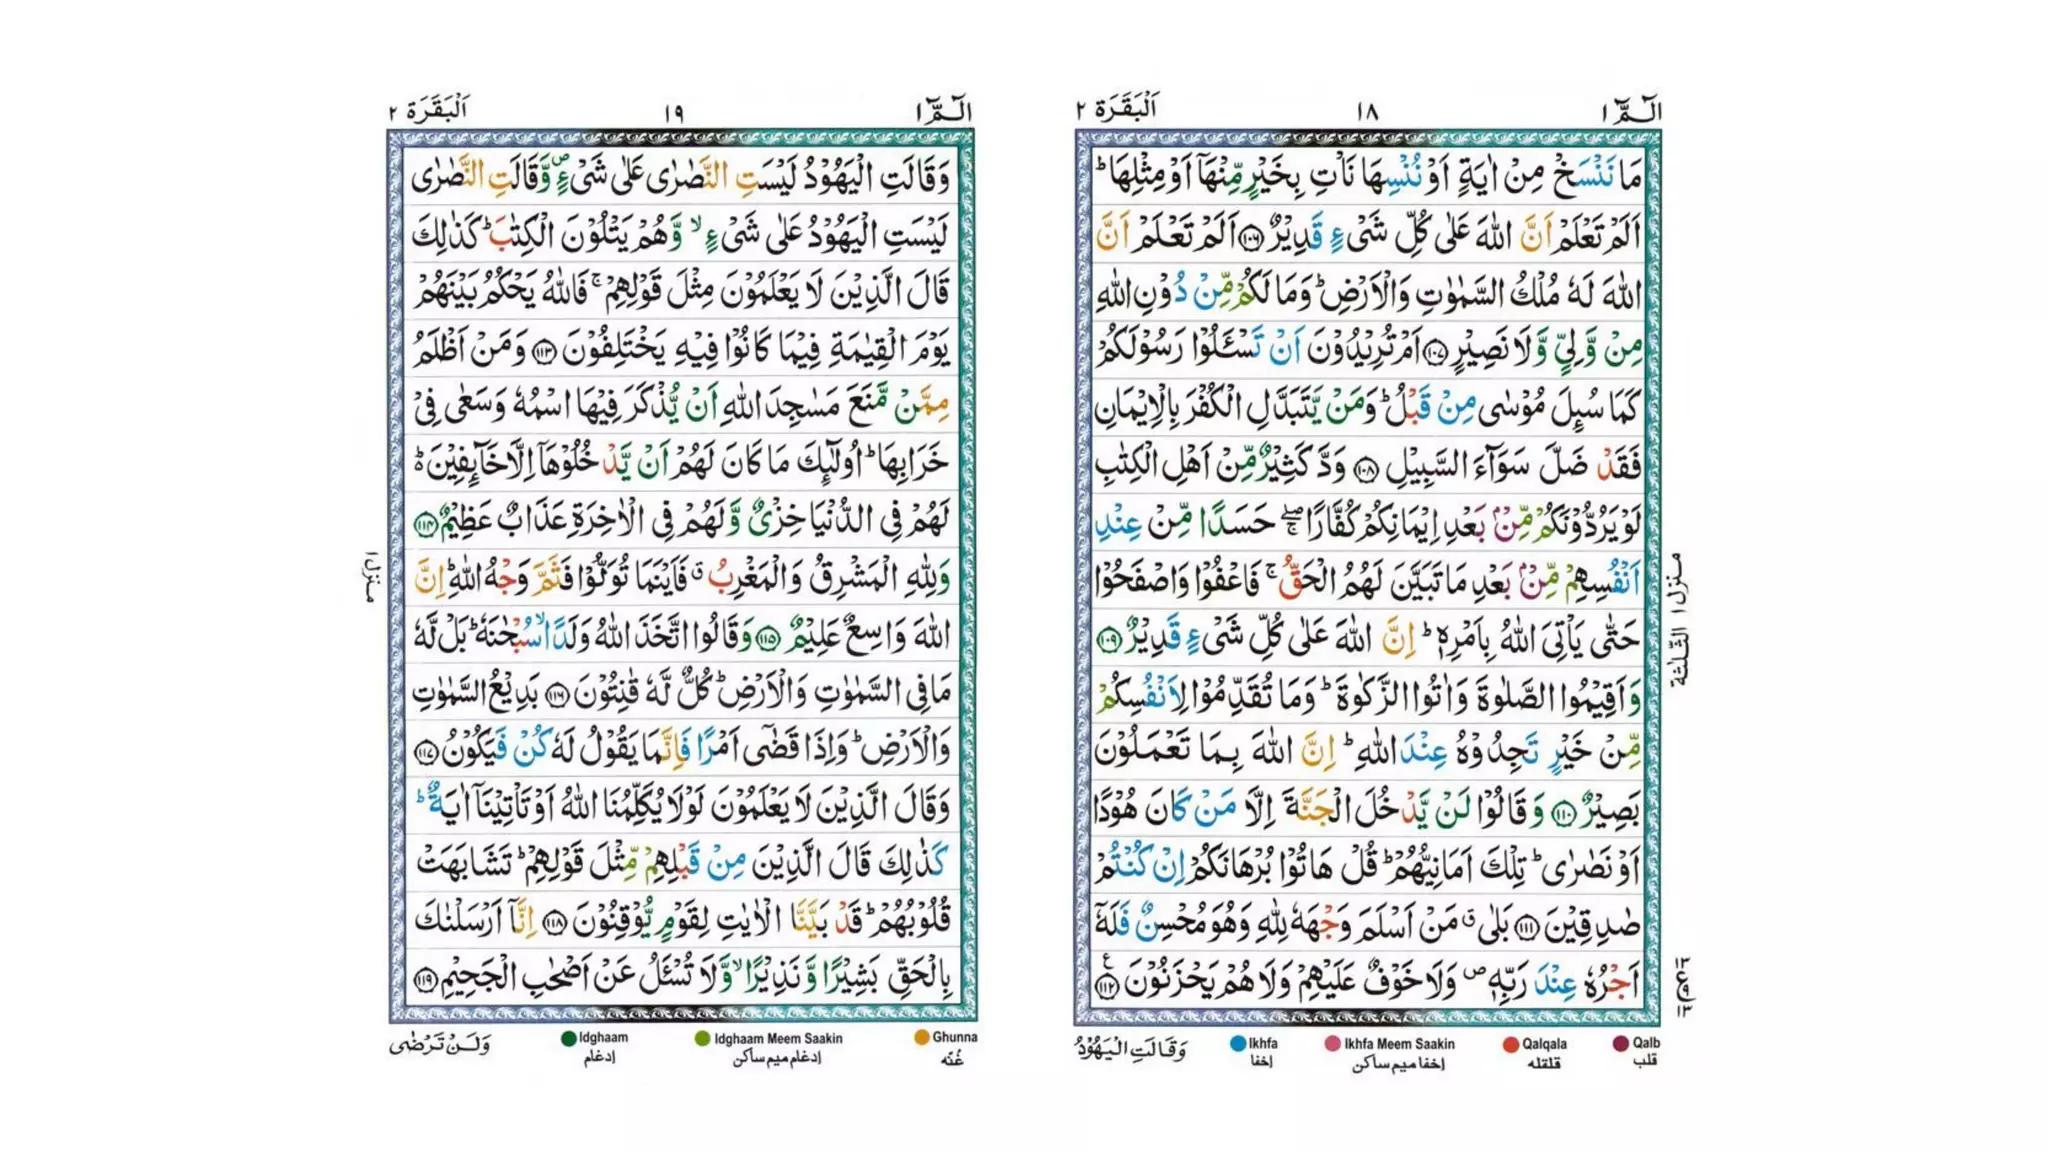 الٓمّٓ ١
١٨
اَلْبَقَرَة ٢
مَا نَنْسَخْ مِنْ اٰيَةٍ اَوْ نُنْسِهَا نَاْتِ بِخَيْرٍ مِّنْهَآ اَوْ مِثْلِهَا ؕ
اَلَمْ تَعْلَمْ اَنَّ اللّٰهَ عَلٰى كُلِّ شَیْءٍ قَدِيْرٌ ۝۱۰۶ اَلَمْ تَعْلَمْ اَنَّ
اللّٰهَ لَهٗ مُلْكُ السَّمٰوٰتِ وَالْاَرْضِ ؕ وَمَا لَكُمْ مِّنْ دُوْنِ اللّٰهِ
مِنْ وَّلِيٍّ وَّلَا نَصِيْرٍ ۝۱۰۷ اَمْ تُرِيْدُوْنَ اَنْ تَسْـَٔلُوْا رَسُوْلَكُمْ
كَمَا سُىِٕلَ مُوْسٰى مِنْ قَبْلُ ؕ وَمَنْ يَّتَبَدَّلِ الْكُفْرَ بِالْاِيْمَانِ
فَقَدْ ضَلَّ سَوَآءَ السَّبِيْلِ ۝۱۰۸ وَدَّ كَثِيْرٌ مِّنْ اَهْلِ الْكِتٰبِ
لَوْ يَرُدُّوْنَكُمْ مِّنْۢ بَعْدِ اِيْمَانِكُمْ كُفَّارًا ۖۚ حَسَدًا مِّنْ عِنْدِ
اَنْفُسِهِمْ مِّنْۢ بَعْدِ مَا تَبَيَّنَ لَهُمُ الْحَقُّ ۚ فَاعْفُوْا وَاصْفَحُوْا
حَتّٰى يَاْتِیَ اللّٰهُ بِاَمْرِهٖ ؕ اِنَّ اللّٰهَ عَلٰى كُلِّ شَیْءٍ قَدِيْرٌ ۝۱۰۹
وَاَقِيْمُوا الصَّلٰوةَ وَاٰتُوا الزَّكٰوةَ ؕ وَمَا تُقَدِّمُوْا لِاَنْفُسِكُمْ
مِّنْ خَيْرٍ تَجِدُوْهُ عِنْدَ اللّٰهِ ؕ اِنَّ اللّٰهَ بِمَا تَعْمَلُوْنَ
بَصِيْرٌ ۝۱۱۰ وَقَالُوْا لَنْ يَّدْخُلَ الْجَنَّةَ اِلَّا مَنْ كَانَ هُوْدًا
اَوْ نَصٰرٰى ؕ تِلْكَ اَمَانِيُّهُمْ ؕ قُلْ هَاتُوْا بُرْهَانَكُمْ اِنْ كُنْتُمْ
صٰدِقِيْنَ ۝۱۱۱ بَلٰى ۗ مَنْ اَسْلَمَ وَجْهَهٗ لِلّٰهِ وَهُوَ مُحْسِنٌ فَلَهٗٓ
اَجْرُهٗ عِنْدَ رَبِّهٖ ۪ وَلَا خَوْفٌ عَلَيْهِمْ وَلَا هُمْ يَحْزَنُوْنَ ۝۱۱۲ ع
منزل ١ الثلثة
١٢
ع
٩
١٣
Qalb قلب
Qalqala قلقله
Ikhfa Meem Saakin إخفا ميم ساكن
Ikhfa إخفا
وَقَالَتِ الْيَهُوْدُ
الٓمّٓ ١
١٩
اَلْبَقَرَة ٢
وَقَالَتِ الْيَهُوْدُ لَيْسَتِ النَّصٰرٰى عَلٰى شَیْءٍ ۪ وَّقَالَتِ النَّصٰرٰى
لَيْسَتِ الْيَهُوْدُ عَلٰى شَیْءٍ ۙ وَّهُمْ يَتْلُوْنَ الْكِتٰبَ ؕ كَذٰلِكَ
قَالَ الَّذِيْنَ لَا يَعْلَمُوْنَ مِثْلَ قَوْلِهِمْ ۚ فَاللّٰهُ يَحْكُمُ بَيْنَهُمْ
يَوْمَ الْقِيٰمَةِ فِيْمَا كَانُوْا فِيْهِ يَخْتَلِفُوْنَ ۝۱۱۳ وَمَنْ اَظْلَمُ
مِمَّنْ مَّنَعَ مَسٰجِدَ اللّٰهِ اَنْ يُّذْكَرَ فِيْهَا اسْمُهٗ وَسَعٰى فِیْ
خَرَابِهَا ؕ اُولٰٓىِٕكَ مَا كَانَ لَهُمْ اَنْ يَّدْخُلُوْهَآ اِلَّا خَآىِٕفِيْنَ ؕ
لَهُمْ فِی الدُّنْيَا خِزْیٌ وَّلَهُمْ فِی الْاٰخِرَةِ عَذَابٌ عَظِيْمٌ ۝۱۱۴
وَلِلّٰهِ الْمَشْرِقُ وَالْمَغْرِبُ ۗ فَاَيْنَمَا تُوَلُّوْا فَثَمَّ وَجْهُ اللّٰهِ ؕ اِنَّ
اللّٰهَ وَاسِعٌ عَلِيْمٌ ۝۱۱۵ وَقَالُوا اتَّخَذَ اللّٰهُ وَلَدًا ۙ سُبْحٰنَهٗ ؕ بَلْ لَّهٗ
مَا فِی السَّمٰوٰتِ وَالْاَرْضِ ؕ كُلٌّ لَّهٗ قٰنِتُوْنَ ۝۱۱۶ بَدِيْعُ السَّمٰوٰتِ
وَالْاَرْضِ ؕ وَاِذَا قَضٰٓى اَمْرًا فَاِنَّمَا يَقُوْلُ لَهٗ كُنْ فَيَكُوْنُ ۝۱۱۷
وَقَالَ الَّذِيْنَ لَا يَعْلَمُوْنَ لَوْلَا يُكَلِّمُنَا اللّٰهُ اَوْ تَاْتِيْنَآ اٰيَةٌ ؕ
كَذٰلِكَ قَالَ الَّذِيْنَ مِنْ قَبْلِهِمْ مِّثْلَ قَوْلِهِمْ ؕ تَشَابَهَتْ
قُلُوْبُهُمْ ؕ قَدْ بَيَّنَّا الْاٰيٰتِ لِقَوْمٍ يُّوْقِنُوْنَ ۝۱۱۸ اِنَّآ اَرْسَلْنٰكَ
بِالْحَقِّ بَشِيْرًا وَّنَذِيْرًا ۙ وَّلَا تُسْـَٔلُ عَنْ اَصْحٰبِ الْجَحِيْمِ ۝۱۱۹
منزل ١
Ghunna غُنّه
Idghaam Meem Saakin إدغام ميم ساكن
Idghaam إدغام
وَلَنْ تَرْضٰى